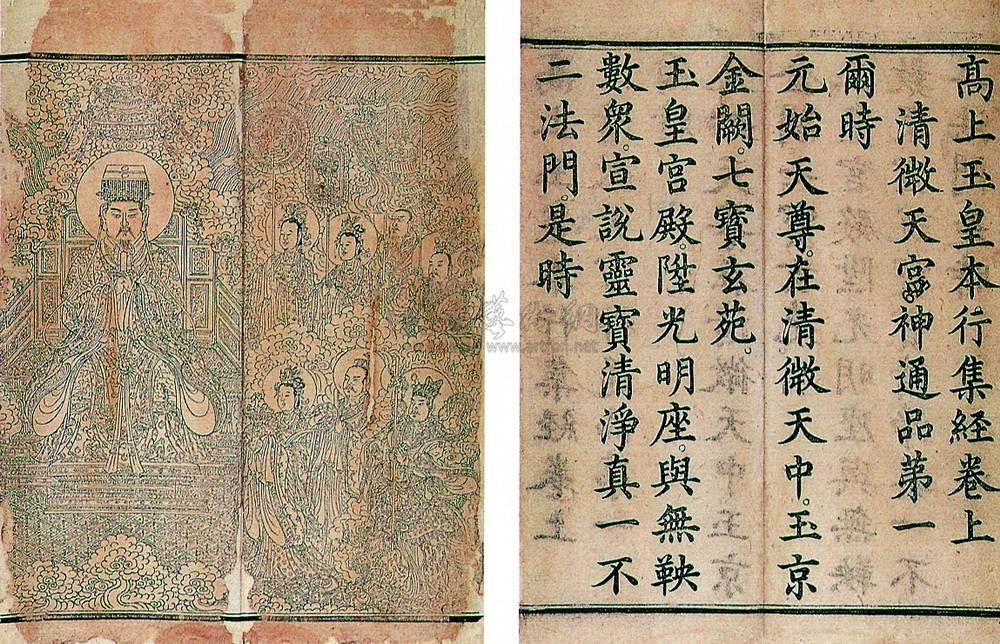 高上玉皇本行集經卷上
清微天宮。神通品第一
爾時
元始天尊。在清微天中。玉京
金闕。七寶玄苑。
玉皇宮殿。陞光明座。與無鞅
數眾。宣說靈寶清淨真一不
二法門。是時